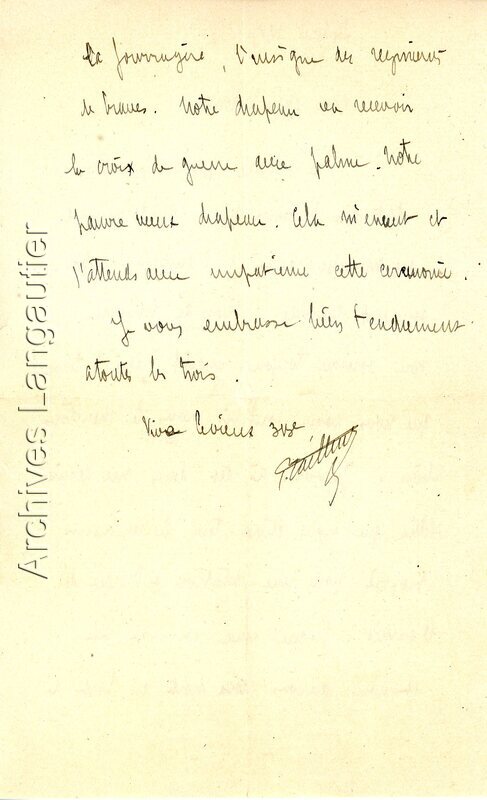 la fourragère, l'insigne des régiments
de braves. Notre drapeau va recevoir
la croix de guerre avec palme. Notre
pauvre vieux drapeau. Cela m'émeut et
j'attends avec impatience cette cérémonie.
Je vous embrasse bien tendrement
a toutes les trois.
Vive le vieux
Archives Langautier